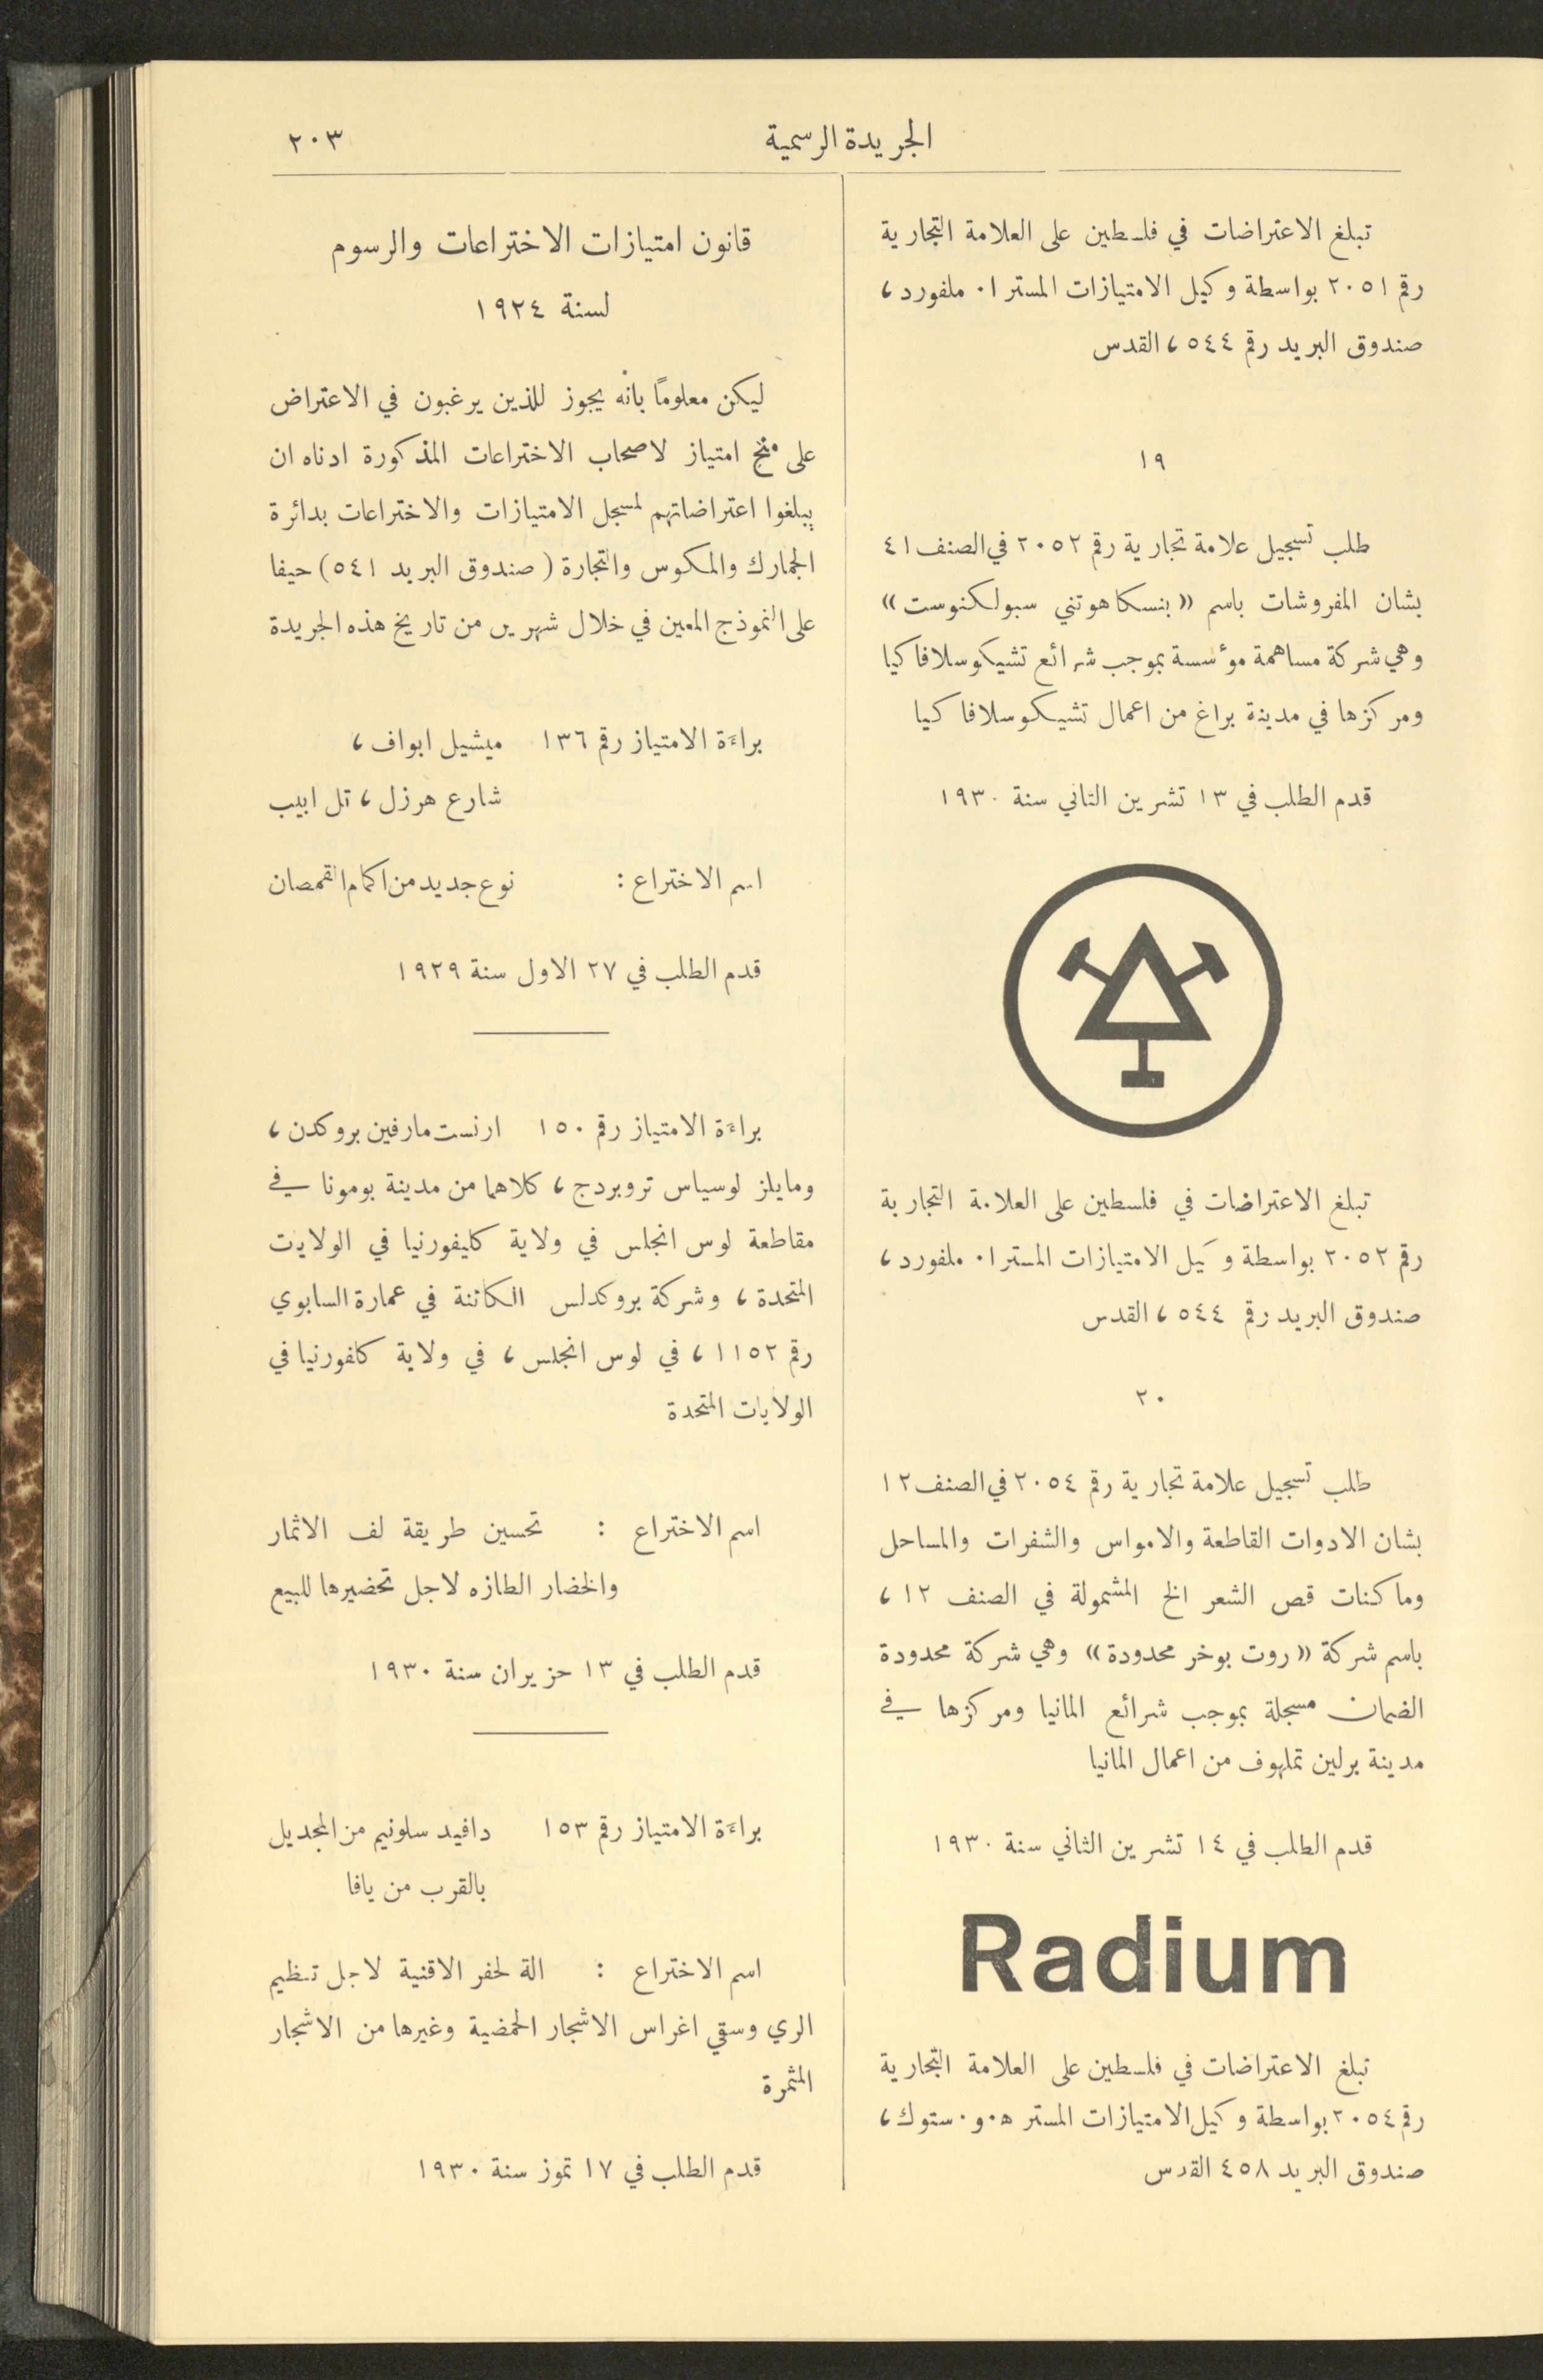 الجريدة الرسمية
٢٠٣
تبلغ الاعتراضات في فلسطين على العلامة التجارية
رقم ٢٠٥١ بواسطة وكيل الامتيازات المستر ا٠ ملفورد،
صندوق البريد رقم ٥٤٤، القدس
١٩
طلب تسجيل علامة تجارية رقم ٢٠٥٢ في الصنف ٤١
بشان المفروشات باسم «بنسكا هوتني سبولكنوست»
وهي شركة مساهمة مؤسسة بموجب شرائع تشيكوسلافاكيا
ومركزها في مدينة براغ من اعمال تشيكوسلافاكيا
قدم الطلب في ١٣ تشرين الثاني سنة ١٩٣٠
تبلغ الاعتراضات في فلسطين على العلامة التجارية
رقم ٢٠٥٢ بواسطة وكيل الامتيازات المستر ا٠ ملفورد،
صندوق البريد رقم ٥٤٤، القدس
٢٠
طلب تسجيل علامة تجارية رقم ٢٠٥٤ في الصنف ١٢
بشان الادوات القاطعة والامواس والشفرات والمساحل
وماكنات قص الشعر الخ المشمولة في الصنف ١٢،
باسم شركة «روت بوخر محدودة» وهي شركة محدودة
الضمان مسجلة بموجب شرائع المانيا ومركزها في
مدينة برلين تملهوف من اعمال المانيا
قدم الطلب في ١٤ تشرين الثاني سنة ١٩٣٠
Radium
تبلغ الاعتراضات في فلسطين على العلامة التجارية
رقم ٢٠٥٤ بواسطة وكيل الامتيازات المستر ه٠و٠ ستوك،
صندوق البريد ٤٥٨ القدس
قانون امتيازات الاختراعات والرسوم
لسنة ١٩٢٤
ليكن معلومًا بانه يجوز للذين يرغبون في الاعتراض
على منح امتياز لاصحاب الاختراعات المذكورة ادناه ان
يبلغوا اعتراضاتهم لمسجل الامتيازات والاختراعات بدائرة
الجمارك والمكوس والتجارة (صندوق البريد ٥٤١) حيفا
على النموذج المعين في خلال شهرين من تاريخ هذه الجريدة
براءة الامتياز رقم ١٣٦ ميشيل ابواف،
شارع هرزل، تل ابيب
اسم الاختراع : نوع جديد من اكمام القمصان
قدم الطلب في ٢٧ الاول سنة ١٩٢٩
براءة الامتياز رقم ١٥٠ ارنست مارفين بروكدن،
ومايلز لوسياس تروبردج، كلاهما من مدينة بومونا في
مقاطعة لوس انجلس في ولاية كليفورنيا في الولايات
المتحدة، وشركة بروكدلس الكائنة في عمارة السابوي
رقم ١١٥٢، في لوس انجلس، في ولاية كلفورنيا في
الولايات المتحدة
اسم الاختراع : تحسين طريقة لف الاثمار
والخضار الطازه لاجل تحضيرها للبيع
قدم الطلب في ١٣ حزيران سنة ١٩٣٠
براءة الامتياز رقم ١٥٣ دافيد سلونيم من المجديل
بالقرب من يافا
اسم الاختراع : الة لحفر الاقنية لاجل تنظيم
الري وسقي اغراس الاشجار الحمضية وغيرها من الاشجار
المثمرة
قدم الطلب في ١٧ تموز سنة ١٩٣٠